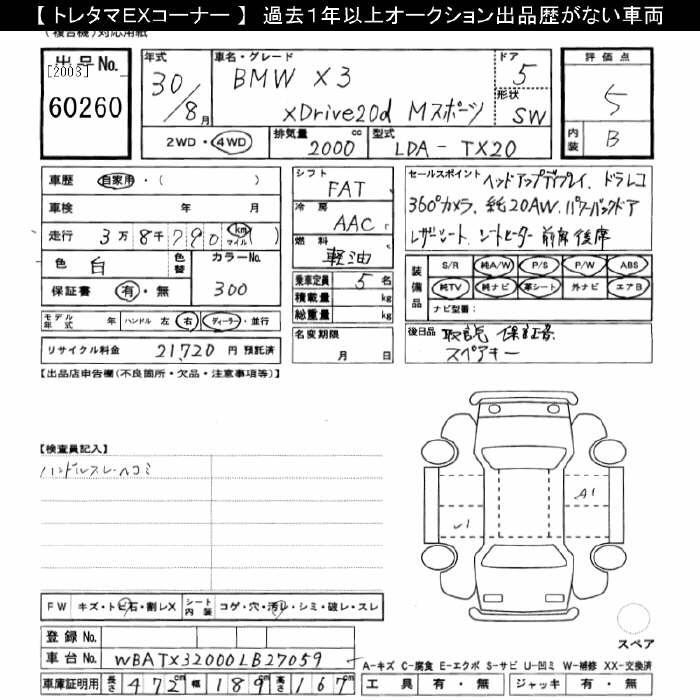 【 トレタマEXコーナー 】 過去1年以上オークション出品歴がない車両
(複合機)対応用紙
出品No.
[2003]
60260
年式 30/8月
車名・グレード
BMW X3
xDrive20d Mスポーツ
ドア 5
形状 SW
評価点
5
内装 B
2WD・4WD
排気量 2000 cc
型式 LDA-TX20
車歴 自家用・( )
車検 年 月
走行 3万8千790 km マイル
色 白 色替 カラーNo. 300
保証書 有・無
モデル年式 年 ハンドル 左 右 ディーラー・並行
リサイクル料金 21,720 円 預託済
シフト FAT
冷房 AAC
燃料 軽油
乗車定員 5 名
積載量 kg
総重量 kg
名変期限
月 日
セールスポイント ヘッドアップディプレイ、ドラレコ
360°カメラ、純20AW、パワーバックドア
レザーシート、シートヒーター前席後席
装備品
S/R 純A/W P/S P/W ABS
純TV 純ナビ 革シート 外ナビ エアB
ナビ型番:
後日品 取説 保証書
スペアキー
【出品店申告欄(不良箇所・欠品・注意事項等)】
【検査員記入】
ハンドルスレ・ヘコミ
A1
FW キズ・トビ石・割レX シート内装 コゲ・穴・汚レ・シミ・破レ・スレ
登録No.
車台No. WBATX32000LB27059
車庫証明用 長さ 472cm 幅 189cm 高さ 167cm
スペア
A-キズ C-腐食 E-エクボ S-サビ U-凹ミ W-補修 XX-交換済
工具 有・無 ジャッキ 有・無